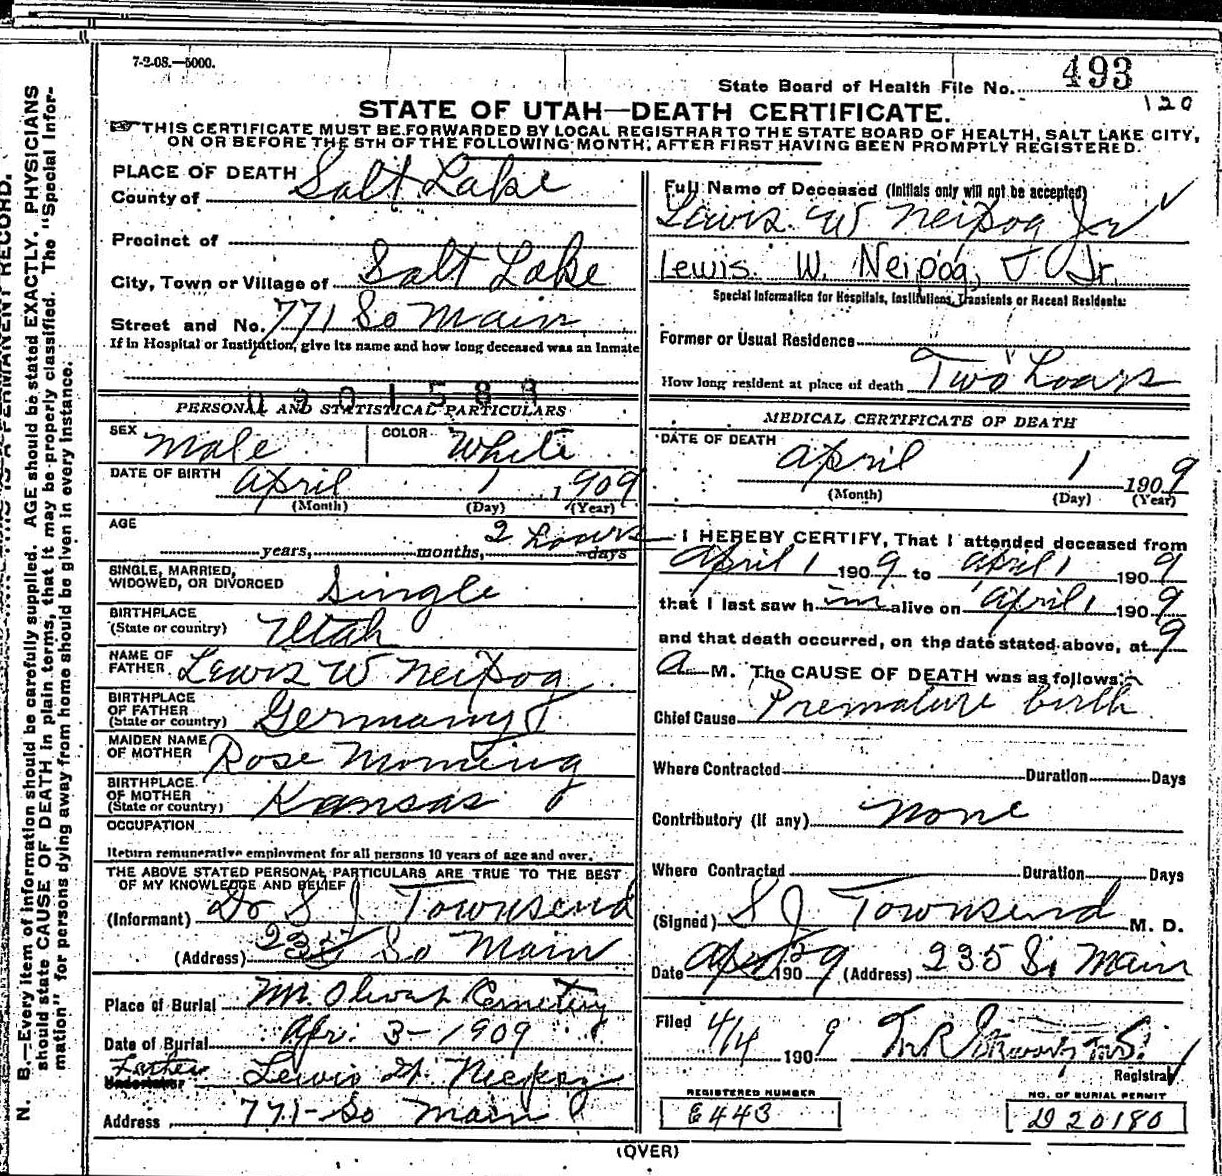 7-2-08.—5000.
State Board of Health File No. 493
120
STATE OF UTAH—DEATH CERTIFICATE.
THIS CERTIFICATE MUST BE FORWARDED BY LOCAL REGISTRAR TO THE STATE BOARD OF HEALTH, SALT LAKE CITY,
ON OR BEFORE THE 5TH OF THE FOLLOWING MONTH, AFTER FIRST HAVING BEEN PROMPTLY REGISTERED.
PLACE OF DEATH
County of Salt Lake
Precinct of
City, Town or Village of Salt Lake
Street and No. 771 So Main
If in Hospital or Institution, give its name and how long deceased was an Inmate
0901583
PERSONAL AND STATISTICAL PARTICULARS
SEX Male COLOR White
DATE OF BIRTH April 1 1909
(Month) (Day) (Year)
AGE
years, months, 2 hours days
SINGLE, MARRIED,
WIDOWED, OR DIVORCED Single
BIRTHPLACE
(State or country) Utah
NAME OF
FATHER Lewis W Neipog
BIRTHPLACE
OF FATHER
(State or country) Germany
MAIDEN NAME
OF MOTHER Rose
BIRTHPLACE
OF MOTHER
(State or country) Kansas
OCCUPATION
Return remunerative employment for all persons 10 years of age and over.
THE ABOVE STATED PERSONAL PARTICULARS ARE TRUE TO THE BEST
OF MY KNOWLEDGE AND BELIEF
(Informant) Dr S J Townsend
(Address) 235 So Main
Place of Burial Mt. Olivet Cemetery
Date of Burial Apr. 3-1909
Father
Undertaker Lewis W. Neipog
Address 771-So Main
Full Name of Deceased (Initials only will not be accepted)
Lewis W Neipog Jr
Lewis W. Neipog, Jr.
Special Information for Hospitals, Institutions, Transients or Recent Residents:
Former or Usual Residence
How long resident at place of death Two hours
MEDICAL CERTIFICATE OF DEATH
DATE OF DEATH
April 1 1909
(Month) (Day) (Year)
I HEREBY CERTIFY, That I attended deceased from
April 1 1909 to April 1 1909
that I last saw him alive on April 1 1909
and that death occurred, on the date stated above, at 9
A M. The CAUSE OF DEATH was as follows:
Chief Cause Premature birth
Where Contracted Duration Days
Contributory (if any) none
Where Contracted Duration Days
(Signed) S J Townsend M. D.
Date Apr 1909 (Address) 235 So Main
Filed 4/14 1909
Registrar
REGISTERED NUMBER
E443
NO. OF BURIAL PERMIT
D20180
(OVER)
N. B.—Every item of information should be carefully supplied. AGE should be stated EXACTLY. PHYSICIANS
should state CAUSE OF DEATH in plain terms, that it may be properly classified. The "Special Infor-
mation" for persons dying away from home should be given in every instance.